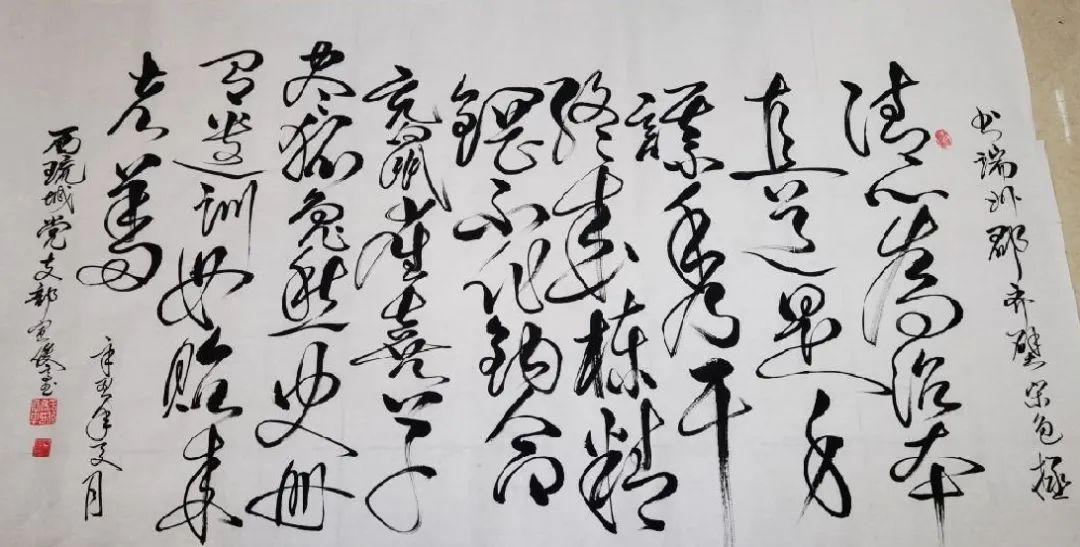 书端州郡斋壁宋包拯
清心为治本
直道是身
謀秀干
终成栋精
鋼不作鈎倉
充鼠雀喜草
尽狐兔愁史册
有遗训毋贻来
者羞
辛丑年 月
西琉城党支部